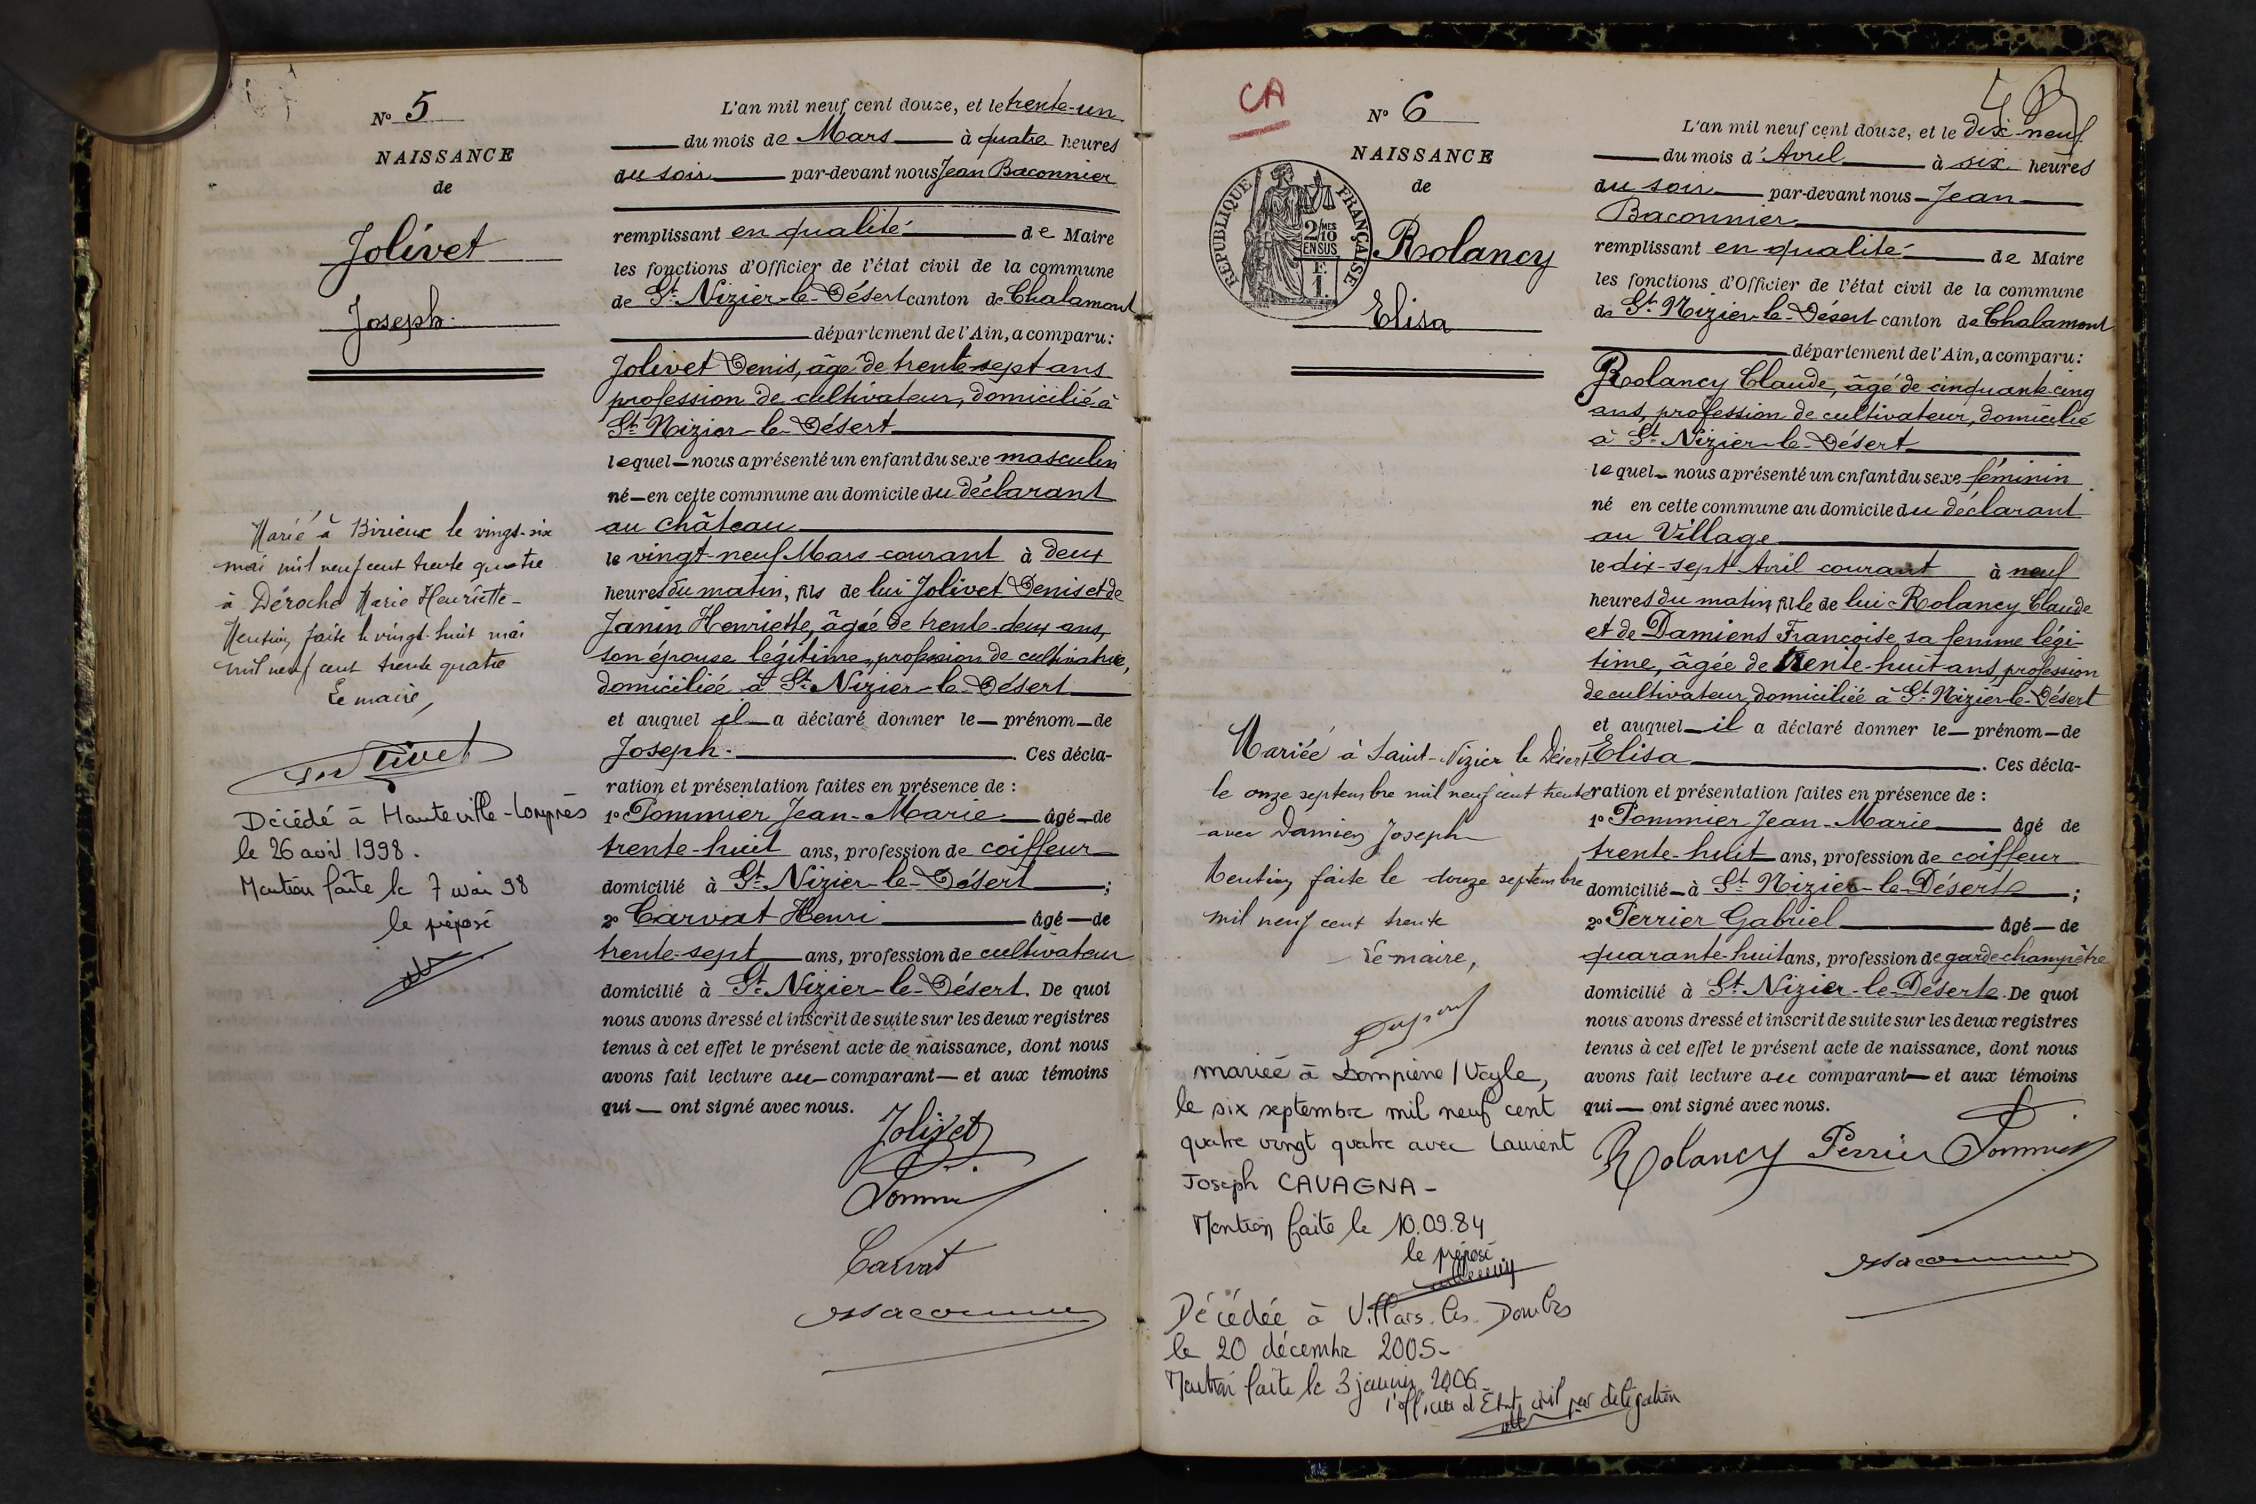 N° 5
NAISSANCE
de
Jolivet
Joseph
Marié à Birieux le vingt-six
mai mil neuf cent trente quatre
à Déroche Marie Henriette -
Mention faite le vingt-huit mai
mil neuf cent trente quatre
Le maire,
Décédé à Hauteville-Lompnès
le 26 avril 1998.
Mention faite le 7 mai 98
le préposé
L'an mil neuf cent douze, et le trente-un
du mois de Mars à quatre heures
du soir par-devant nous Jean Baconnier
remplissant en qualité de Maire
les fonctions d'Officier de l'état civil de la commune
de St Nizier-le-Désert canton de Chalamont
département de l'Ain, a comparu:
Jolivet Denis, âgé de trente-sept ans
profession de cultivateur, domicilié à
St Nizier-le-Désert
lequel nous a présenté un enfant du sexe masculin
né en cette commune au domicile du déclarant
au château
le vingt-neuf Mars courant à deux
heures du matin, fils de lui Jolivet Denis et de
Janin Henriette, âgée de trente-deux ans,
son épouse légitime, profession de cultivatrice,
domiciliée à St Nizier-le-Désert
et auquel il a déclaré donner le prénom de
Joseph. Ces décla-
ration et présentation faites en présence de :
1° Pommier Jean-Marie âgé de
trente-huit ans, profession de coiffeur
domicilié à St Nizier-le-Désert ;
2° Carvat Henri âgé de
trente-sept ans, profession de cultivateur
domicilié à St Nizier-le-Désert. De quoi
nous avons dressé et inscrit de suite sur les deux registres
tenus à cet effet le présent acte de naissance, dont nous
avons fait lecture au comparant et aux témoins
qui ont signé avec nous.
Jolivet
Carvat
CA
N° 6
NAISSANCE
de
RÉPUBLIQUE FRANÇAISE
2/10 MES
EN SUS
F.
1.
Rolancy
Elisa
Mariée à Saint-Nizier le Désert
le onze septembre mil neuf cent trente
avec Damien Joseph
Mention faite le douze septembre
mil neuf cent trente
Le maire,
mariée à Dompierre / Veyle,
le six septembre mil neuf cent
quatre vingt quatre avec Laurent
Joseph CAVAGNA -
Mention faite le 10.09.84
le préposé
Décédée à Villars-les-Dombes
le 20 décembre 2005-
Mention faite le 3 janvier 2006
l'officier d'État civil par délégation
L'an mil neuf cent douze, et le dix-neuf
du mois d'Avril à six heures
du soir par-devant nous Jean
Baconnier
remplissant en qualité de Maire
les fonctions d'Officier de l'état civil de la commune
de St Nizier-le-Désert canton de Chalamont
département de l'Ain, a comparu:
Rolancy Claude, âgé de cinquante-cinq
ans, profession de cultivateur, domicilié
à St Nizier-le-Désert
lequel nous a présenté un enfant du sexe féminin
né en cette commune au domicile du déclarant
au Village
le dix-sept Avril courant à neuf
heures du matin, fille de lui Rolancy Claude
et de Damiens Françoise, sa femme légi-
time, âgée de trente-huit ans, profession
de cultivateur, domiciliée à St Nizier-le-Désert
et auquel il a déclaré donner le prénom de
Elisa. Ces décla-
ration et présentation faites en présence de :
1° Pommier Jean-Marie âgé de
trente-huit ans, profession de coiffeur
domicilié à St Nizier-le-Désert ;
2° Perrier Gabriel âgé de
quarante-huit ans, profession de garde-champêtre
domicilié à St Nizier-le-Désert. De quoi
nous avons dressé et inscrit de suite sur les deux registres
tenus à cet effet le présent acte de naissance, dont nous
avons fait lecture au comparant et aux témoins
qui ont signé avec nous.
Rolancy Perrier Pommier